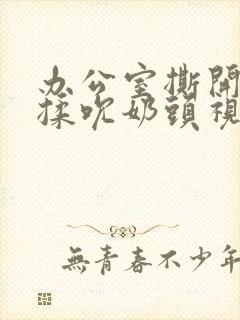 办公室撕開
揉吹奶頭視
無青春不少年